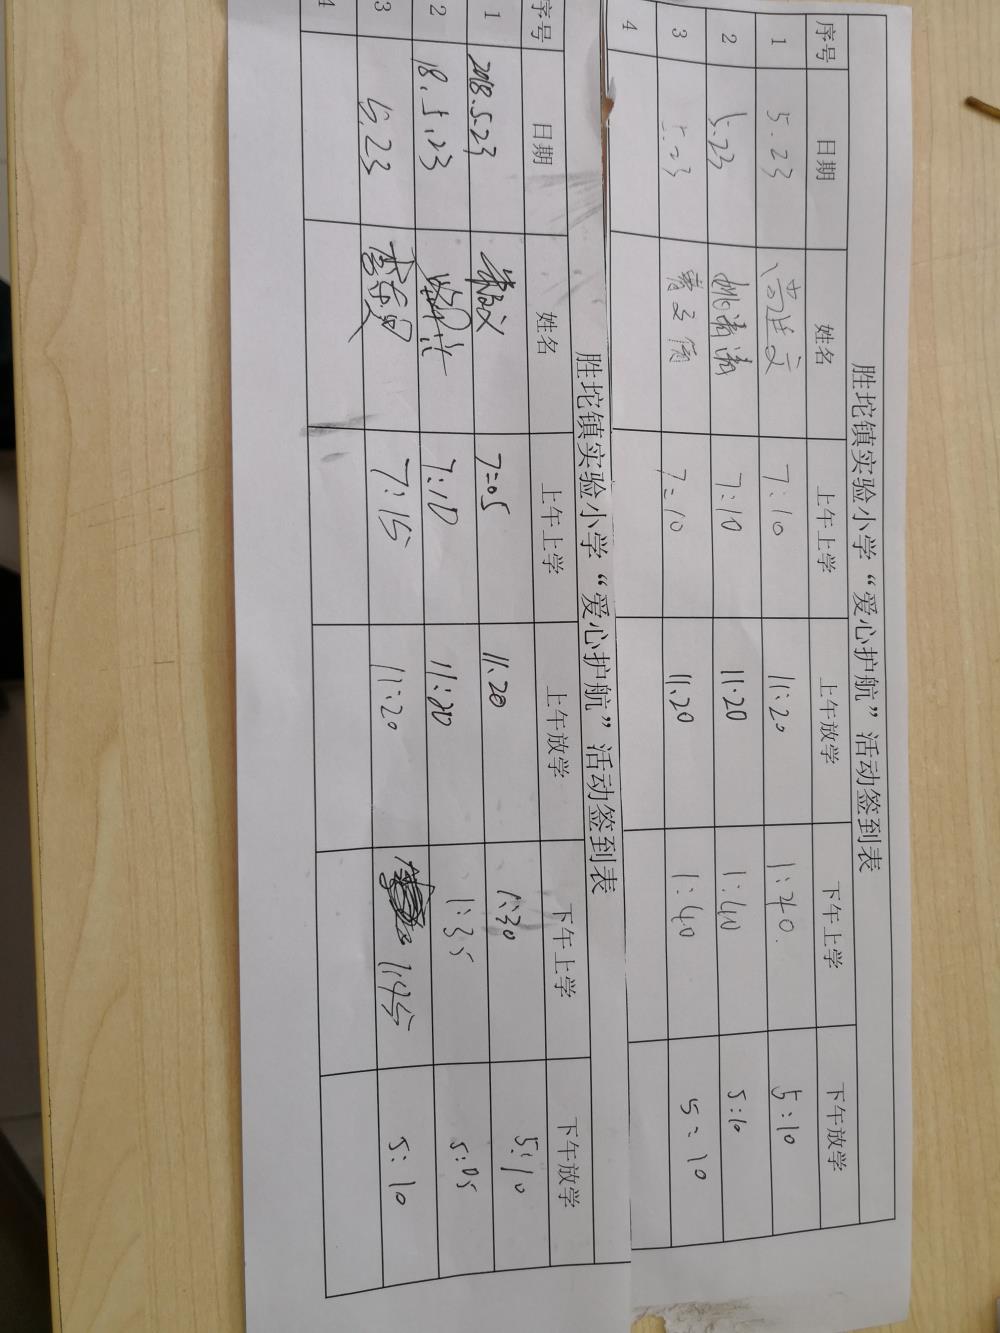 胜坨镇实验小学“爱心护航”活动签到表
序号 日期 姓名 上午上学 上午放学 下午上学 下午放学
1 5.23 7:10 11:20 1:40. 5:10
2 5.23 7:10 11.20 1:40 5:10
3 5.23 7:10 11.20 1:40 5:10
4
胜坨镇实验小学“爱心护航”活动签到表
序号 日期 姓名 上午上学 上午放学 下午上学 下午放学
1 2018.5.23 7:05 11.20 1:30 5:10
2 18.5.23 7:10 11:20 1:35 5:05
3 5.23 7:15 11:20 1:45 5:10
4